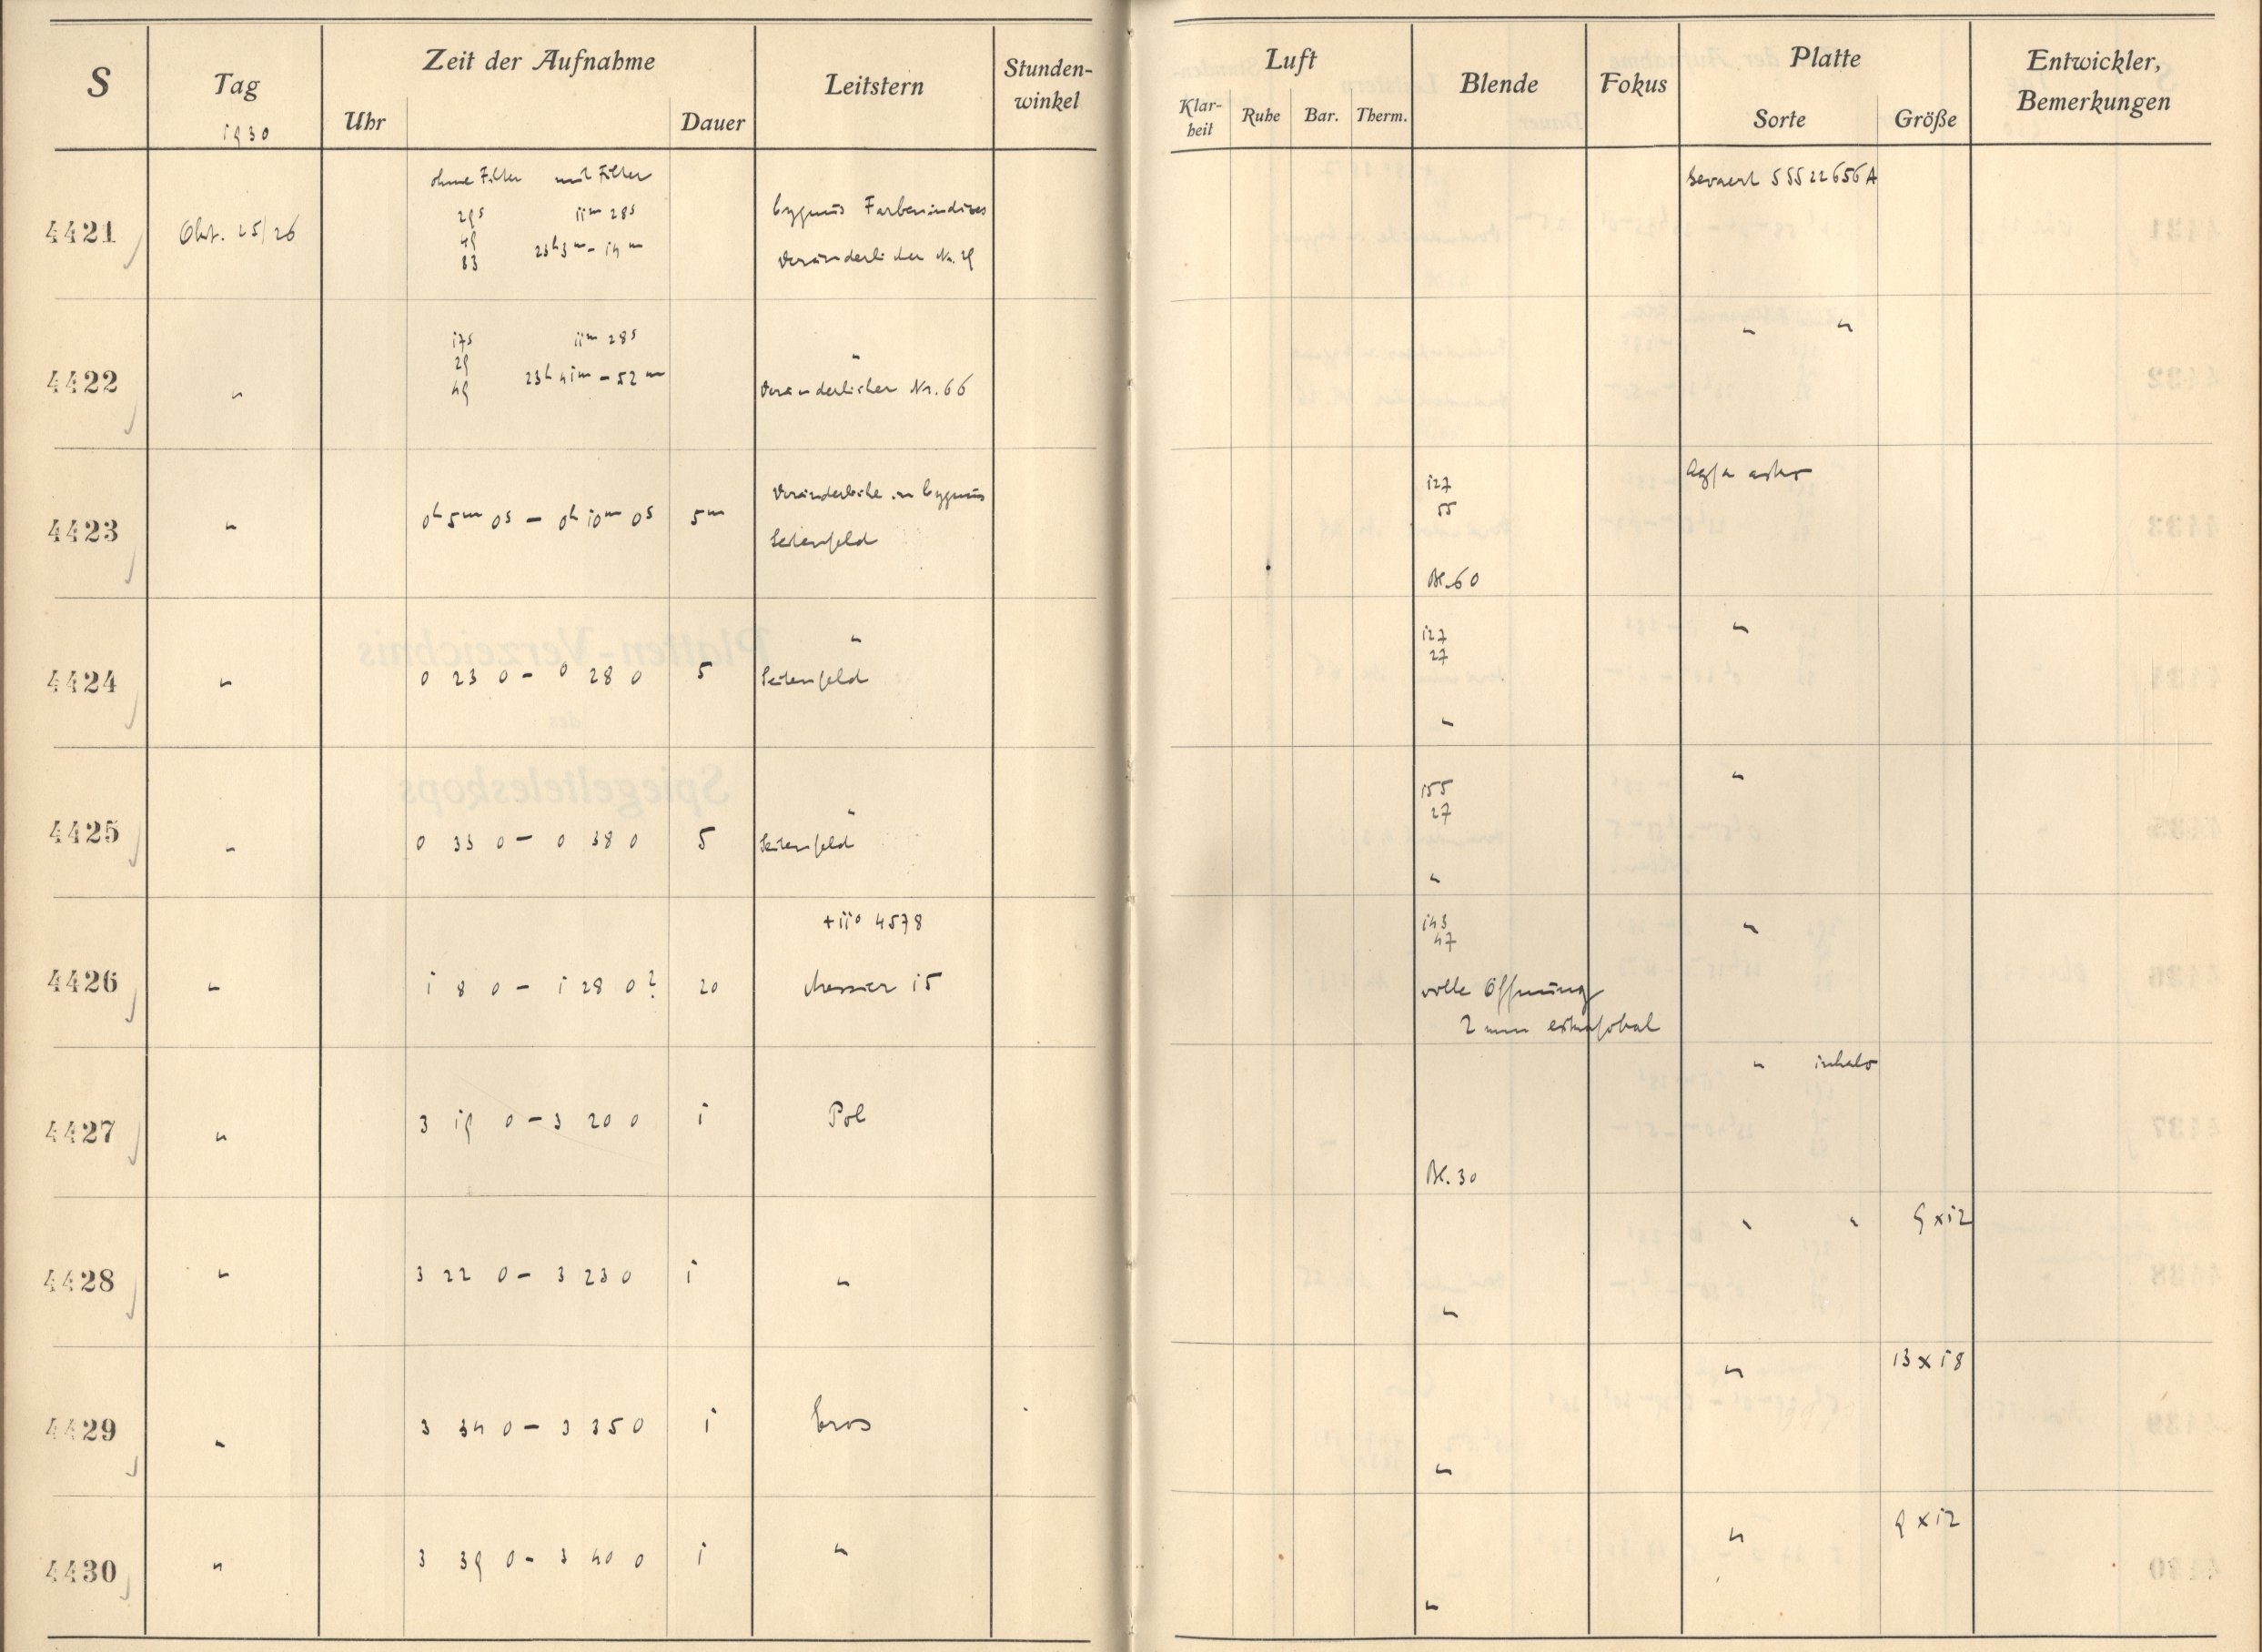 S Tag 1930 Zeit der Aufnahme Uhr Dauer Leitstern Stunden-winkel Luft Klar-heit Ruhe Bar. Therm. Blende Fokus Platte Sorte Größe Entwickler, Bemerkungen
ohne Filter mit Filter Gevaert SSS 22656A
29s 11m 28s Cygnus Farbenindizes
4421 Okt. 25/26 49 23h 3m - 14m
83 Veränderlicher Nr. 29
17s 11m 28s " "
29 "
4422 " 49 23h 41m - 52m Veränderlicher Nr. 66
Veränderliche in Cygnus 127 Agfa astro
55
4423 " 0h 5m 0s - 0h 10m 0s 5m Seitenfeld
Bl. 60
" 127 "
27
4424 " 0 23 0 - 0 28 0 5 Seitenfeld
"
" 155 "
27
4425 " 0 33 0 - 0 38 0 5 Seitenfeld
"
+11° 4578 143 "
47
4426 " 1 8 0 - 1 28 0? 20 Messier 15 volle Öffnung
2 mm extrafokal
"
4427 " 3 19 0 - 3 20 0 1 Pol
Bl. 30
" " 9 x 12
4428 " 3 22 0 - 3 23 0 1 "
"
" 13 x 18
4429 " 3 34 0 - 3 35 0 1 Eros
"
" 9 x 12
4430 " 3 39 0 - 3 40 0 1 "
"